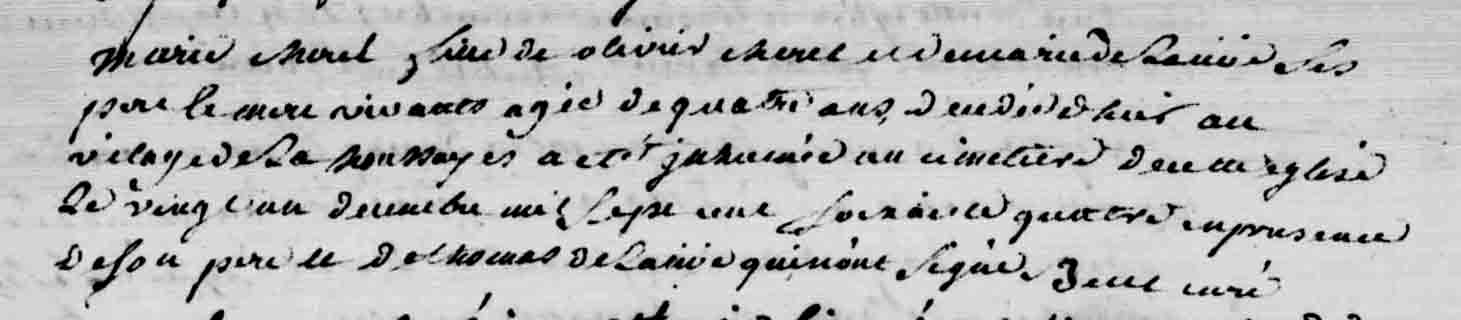 marie morel fille de olivier morel et de marie de Laune ses
pere & mere vivants agée de quatre ans, decedée d'hier au
vilage de La houssayes a eté inhumée au cimetiere de cette eglise
Le vingt un decembre mil sept cent soixante quatre en presence
de son pere et de thomas de Laune qui n'ont signé curé